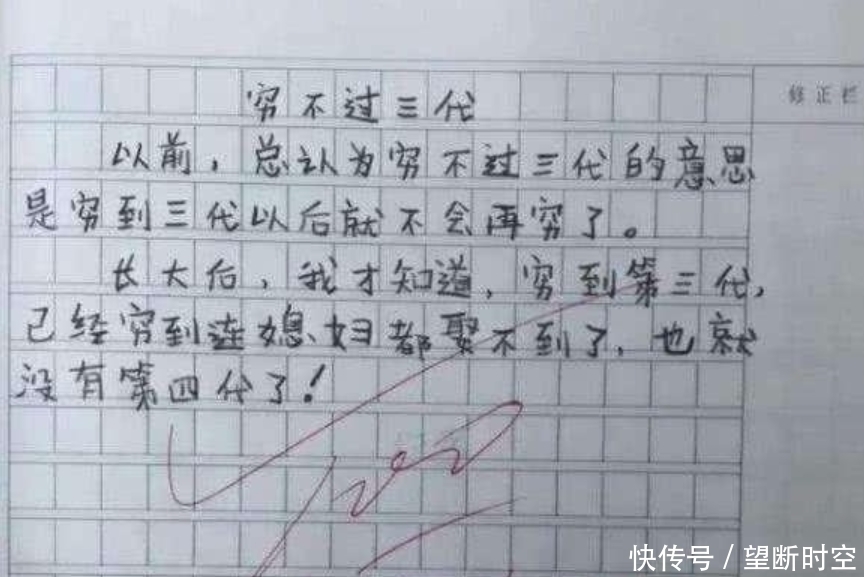 穷不过三代
修正栏
以前，总认为穷不过三代的意思
是穷到三代以后就不会再穷了。
长大后，我才知道，穷到第三代，
已经穷到连媳妇都娶不到了，也就
没有第四代了！
100
快传号／望断时空